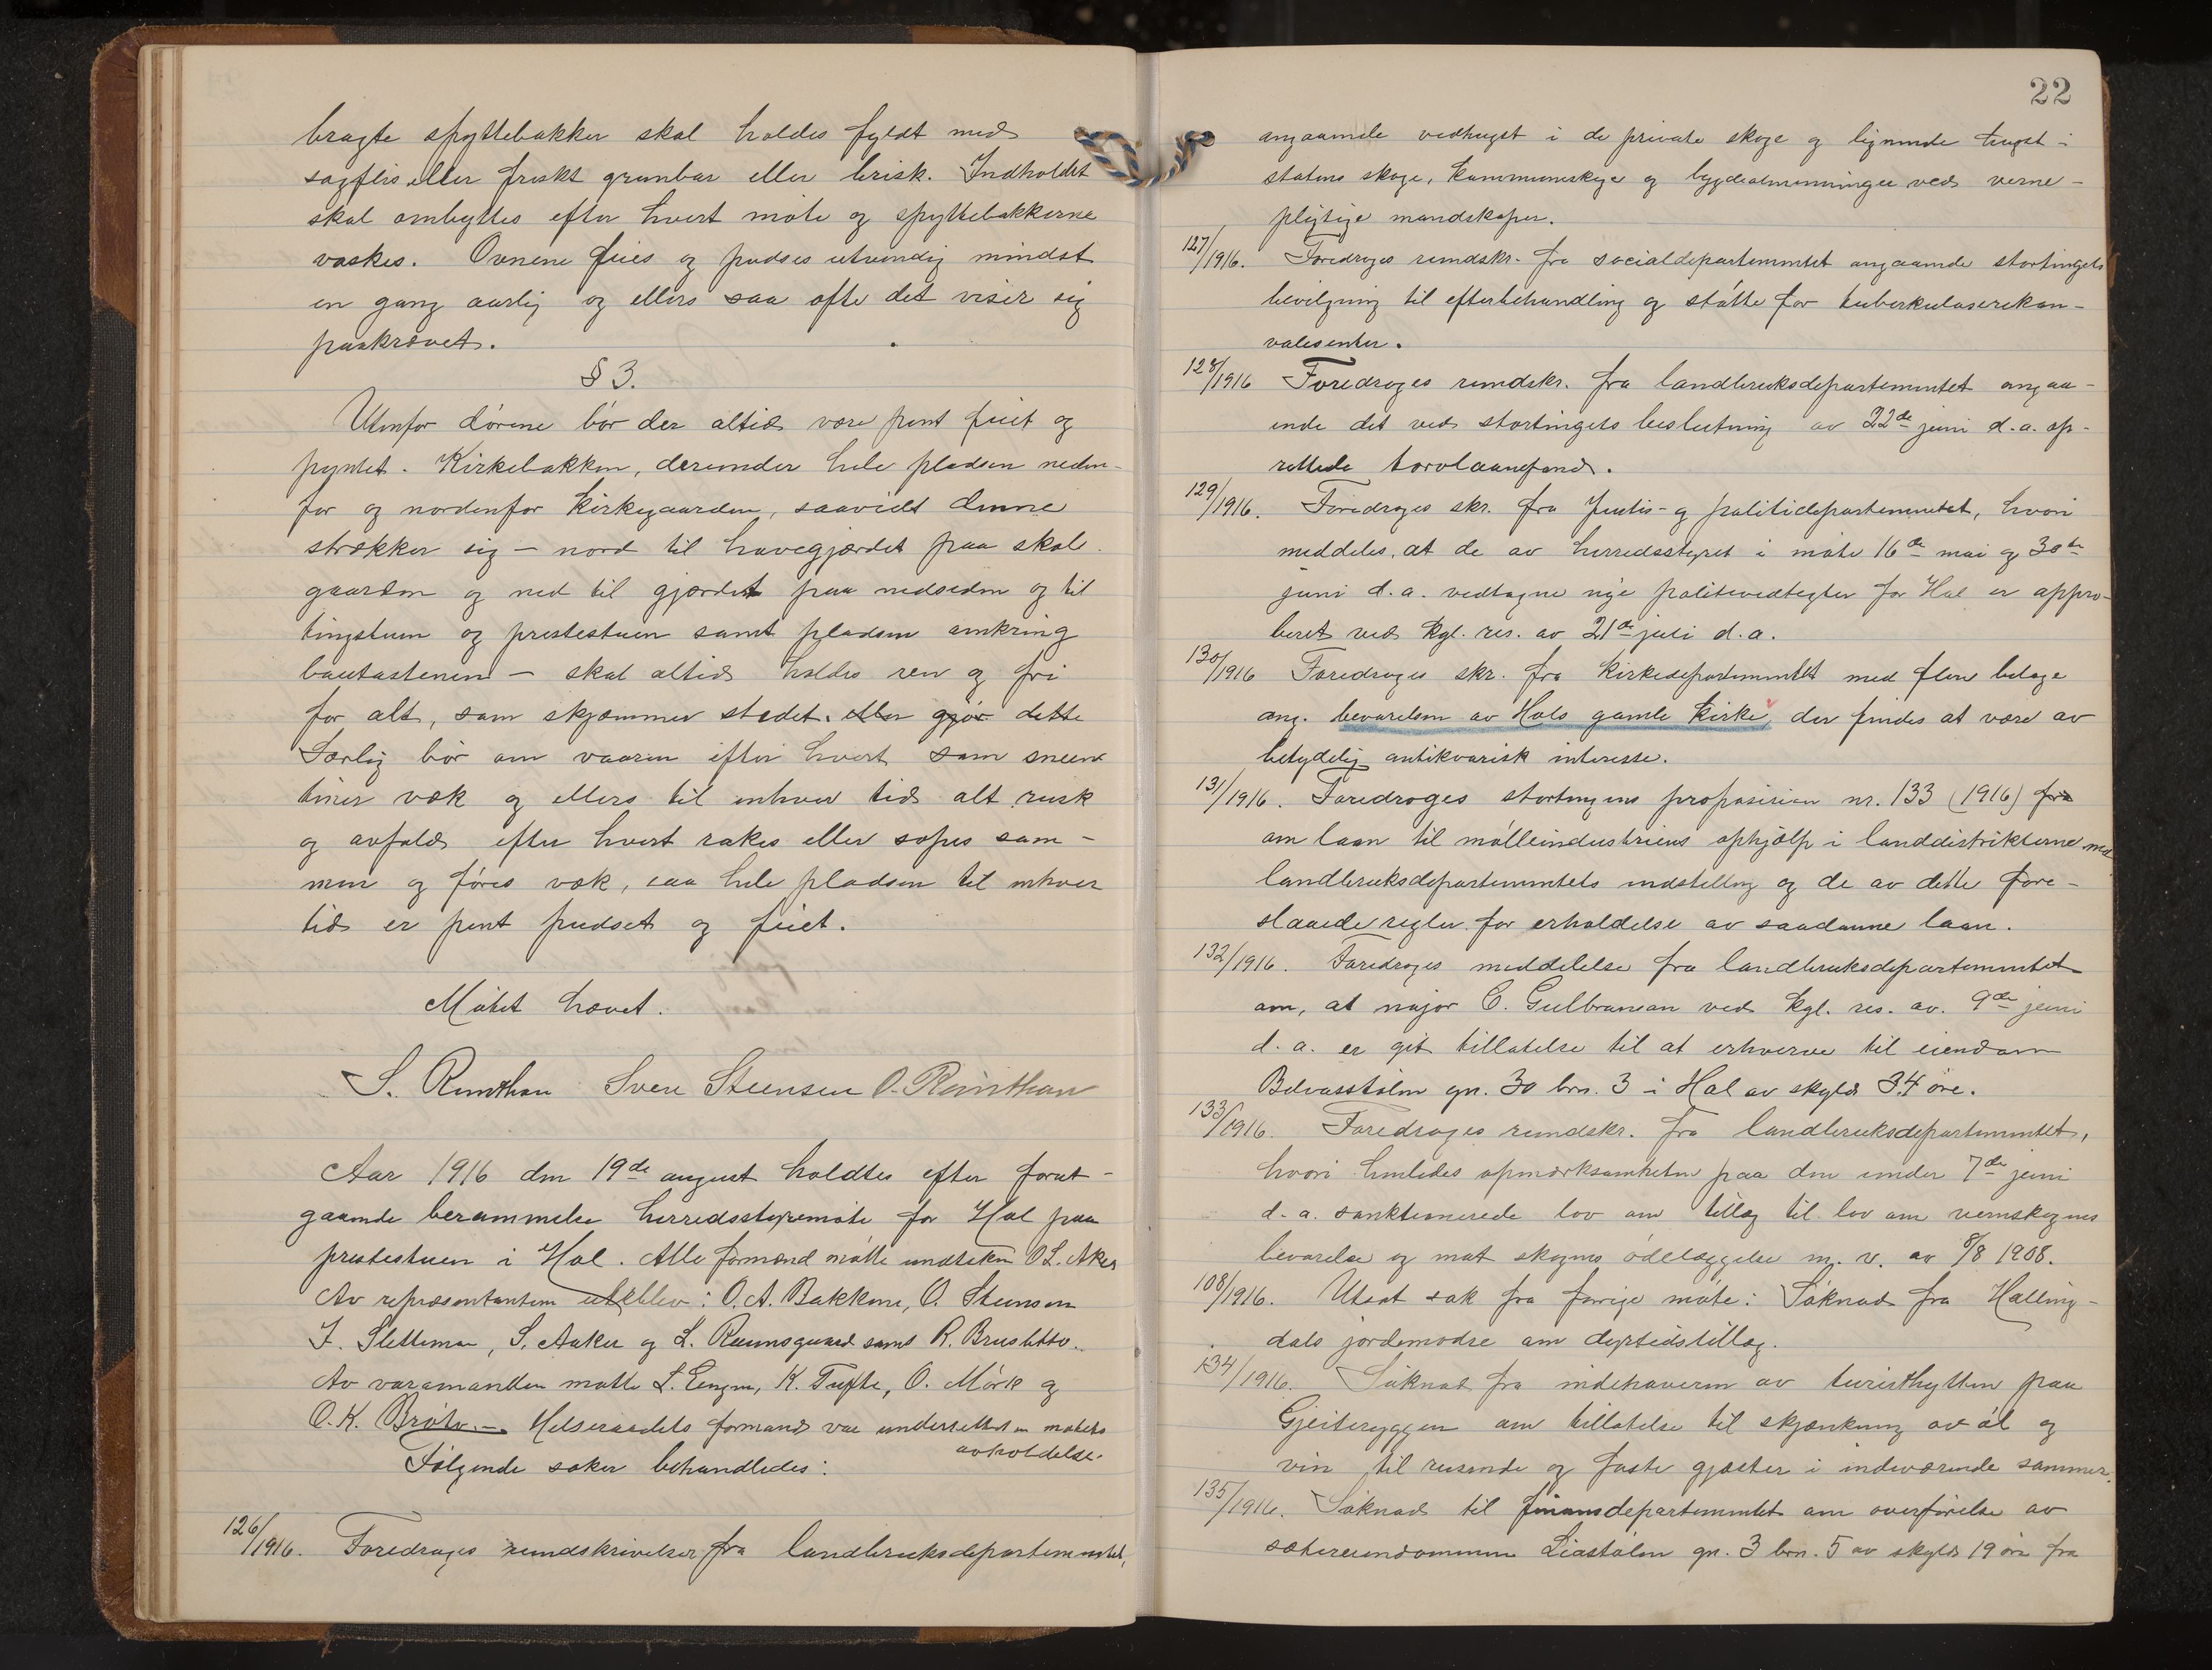 bragte spyttebakker skal holdes fyldt med
sagflis eller friskt granbar eller brisk. Indholdet
skal ombyttes efter hvert møte og spyttebakkerne
vaskes. Ovnene feies og pudses utvendig mindst
en gang aarlig og ellers saa ofte det viser sig
paakrævet.
§ 3.
Utenfor dørene bør der altid være pent feiet og
pyntet. Kirkebakken, derunder hele pladsen neden-
for og nordenfor kirkegaarden, saavidt denne
strækker sig - nord til havegjærdet paa skole
gaarden og ned til gjærdet paa nedsiden og til
tingstuen og prestestuen samt pladsen omkring
bautastenen - skal altid holdes ren og fri
for alt, som skjæmmer stedet. eller gjør dette
Særlig bør om vaaren efter hvert som sneen
tiner væk og ellers til enhver tid alt rusk
og avfald efter hvert rakes eller sopes sam-
men og føres væk, saa hele pladsen til enhver
tid er pent pudset og feiet.
Møtet hævet.
S. Rimthan Sven Steensen O. Rimthan
Aar 1916 den 19de august holdtes efter forut-
gaaende berammelse herredsstyremøte for Hol paa
prestestuen i Hol. Alle formænd møtte undtaken O L. Aker
Av repræsentanten utebblev: O. A. Bakkene, O. Steensen
T. Sletteman, S. Aaker og L. Ruunsgaard samt R. Bruslette.
Av varamænden møtte L. Eengen, K. Tufte, O. Mørk og
O. K. Brøto.- Helseraadets formand var underrettet om møtets
avholdelse.
Følgende saker behandledes:
126/1916. Foredroges rundskrivelser fra landbruksdepartementet,
22
angaaende vedhugst i de private skoge og lignende hugst i
statens skoge, kommuneskoge og bygdealmenninger ved verne-
pligtige mandskaper.
127/1916. Foredroges rundskr. fra socialdepartementet angaaende stortingets
bevilgning til efterbehandling og støtte for tuberkuloserekon-
valesenter.
128/1916 Foredroges rundskr. fra landbruksdepartementet angaa-
ende det ved stortingets beslutning av 22de juni d.a. op-
rettede torvlaanefond.
129/1916. Foredroges skr. fra Justis- og politidepartementet, hvori
meddeles, at de av herredsstyret i møte 16de mai og 30te
juni d.a. vedtagne nye politivedtegter for Hol er appro-
beret ved kgl. res. av 21de juli d.a.
130/1916 Foredroges skr. fra kirkedepartementet med flere bilage
ang. bevarelsen av Hols gamle kirke, der findes at være av
betydelig antikvarisk interesse.
131/1916. Foredroges stortingens proposision nr. 133 (1916) fra
om laan til mølleindustriens ophjælp i landdistrikterne med
landbruksdepartementets indstilling og de av dette fore-
slaaede regler for erholdelse av saadanne laan.
132/1916. Foredroges meddelelse fra landbruksdepartementet
om, at major C. Gulbranson ved kgl. res. av. 9de juni
d.a. er git tillatelse til at erhverve til eiendom
Bolvasstølen gn. 30 brn. 3 i Hol av skyld 34 øre.
133/1916. Foredroges rundskr. fra landbruksdepartementet,
hvori henledes opmærksomheten paa den under 7de juni
d.a. sanktionerede lov om tillæg til lov om vernskogens
bevarelse og mot skogens ødelæggelse m. v. av 8/8 1908.
108/1916. Utsat sak fra forrige møte: Søknad fra Halling-
dals jordemødre om dyrtidstillæg.
134/1916. Søknad fra indehaveren av turisthytten paa
Gjeiteryggen om tillatelse til skjænkning av øl og
vin til reisende og faste gjæster i indeværende sommer.
135/1916. Søknad til finansdepartementet om overførelse av
sætereiendommen Liastølen gn. 3 brn. 5 av skyld 19 øre fra